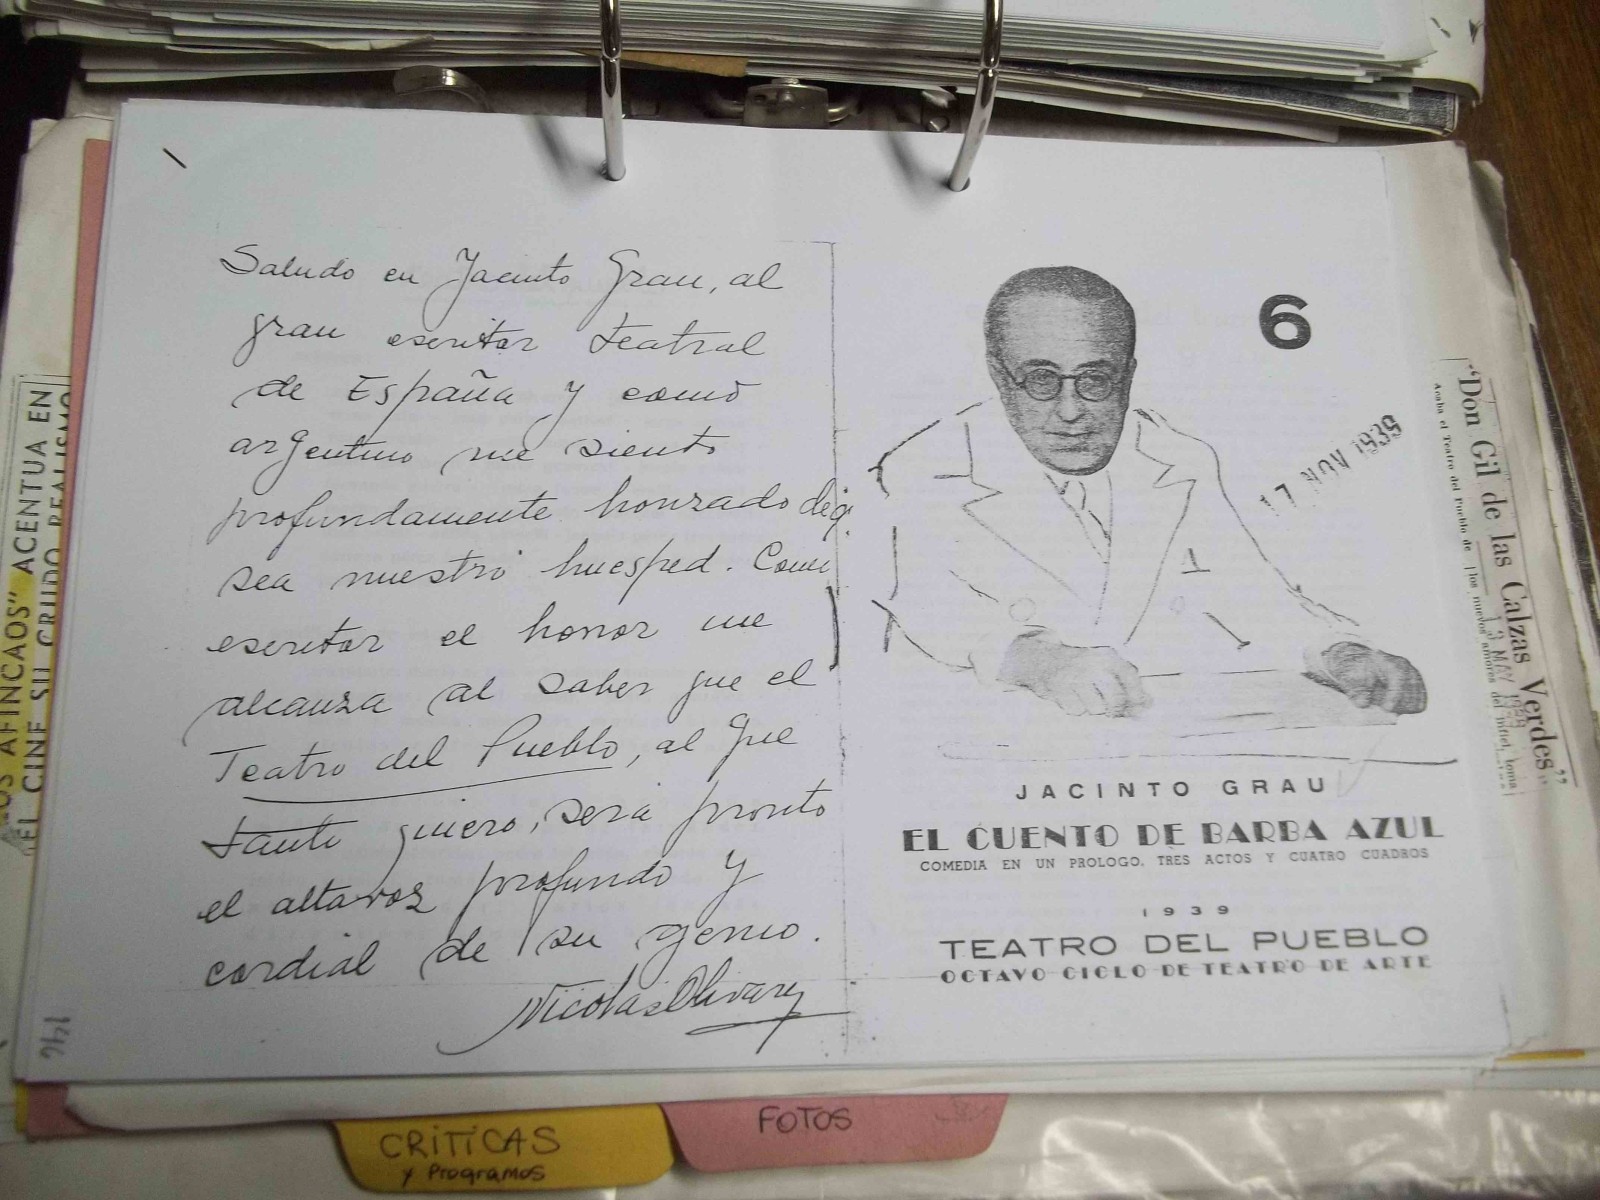 Saludo en Jacinto Grau, al
gran escritor teatral
de España y como
argentino me siento
profundamente honrado de q.
sea nuestro huesped. Como
escritor el honor me
alcanza al saber que el
Teatro del Pueblo, al que
tanto quiero, será pronto
el altavoz profundo y
cordial de su genio.
Nicolás Olivari
6
17 NOV 1939
JACINTO GRAU
EL CUENTO DE BARBA AZUL
COMEDIA EN UN PROLOGO, TRES ACTOS Y CUATRO CUADROS
1939
TEATRO DEL PUEBLO
OCTAVO CICLO DE TEATRO DE ARTE
"Don Gil de las Calzas Verdes"
Acaba el Teatro del Pueblo de
los nuevos amores del infiel, toma
13 MAY
LOS AFINCAOS" ACENTUA EN
EL CINE SU CRUDO REALISMO
CRíTíCAS
y Programas
FOTOS